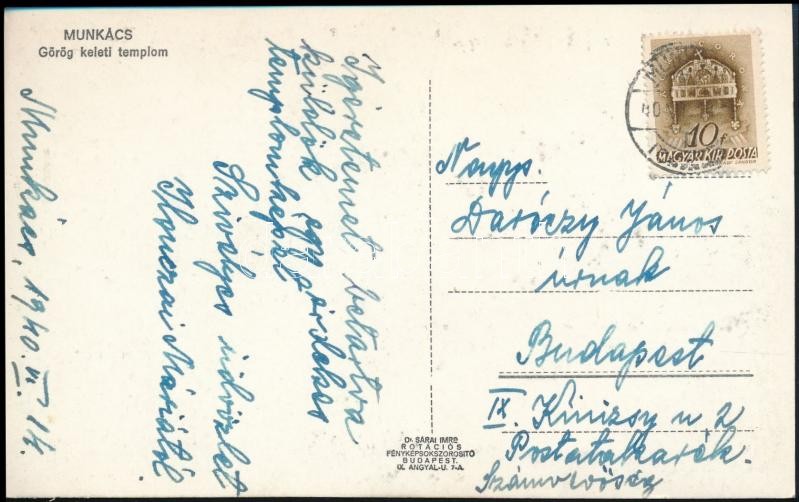 MUNKÁCS
Görög keleti templom
Munkács, 1940. VI. 14.
Igéretemet betartva
küldök egy érdekes
templomképet
Szivélyes üdvözlet
Máriától
10 f
MAGYAR KIR. POSTA
Nagys.
Daróczy János
úrnak
Budapest
IX. Kinizsy u 2
Postatakarék.
Számvevőség
Dr SÁRAI IMRE
ROTÁCIÓS
FÉNYKÉPSOKSZOROSITÓ
BUDAPEST.
IX. ANGYAL-U. 7-A.